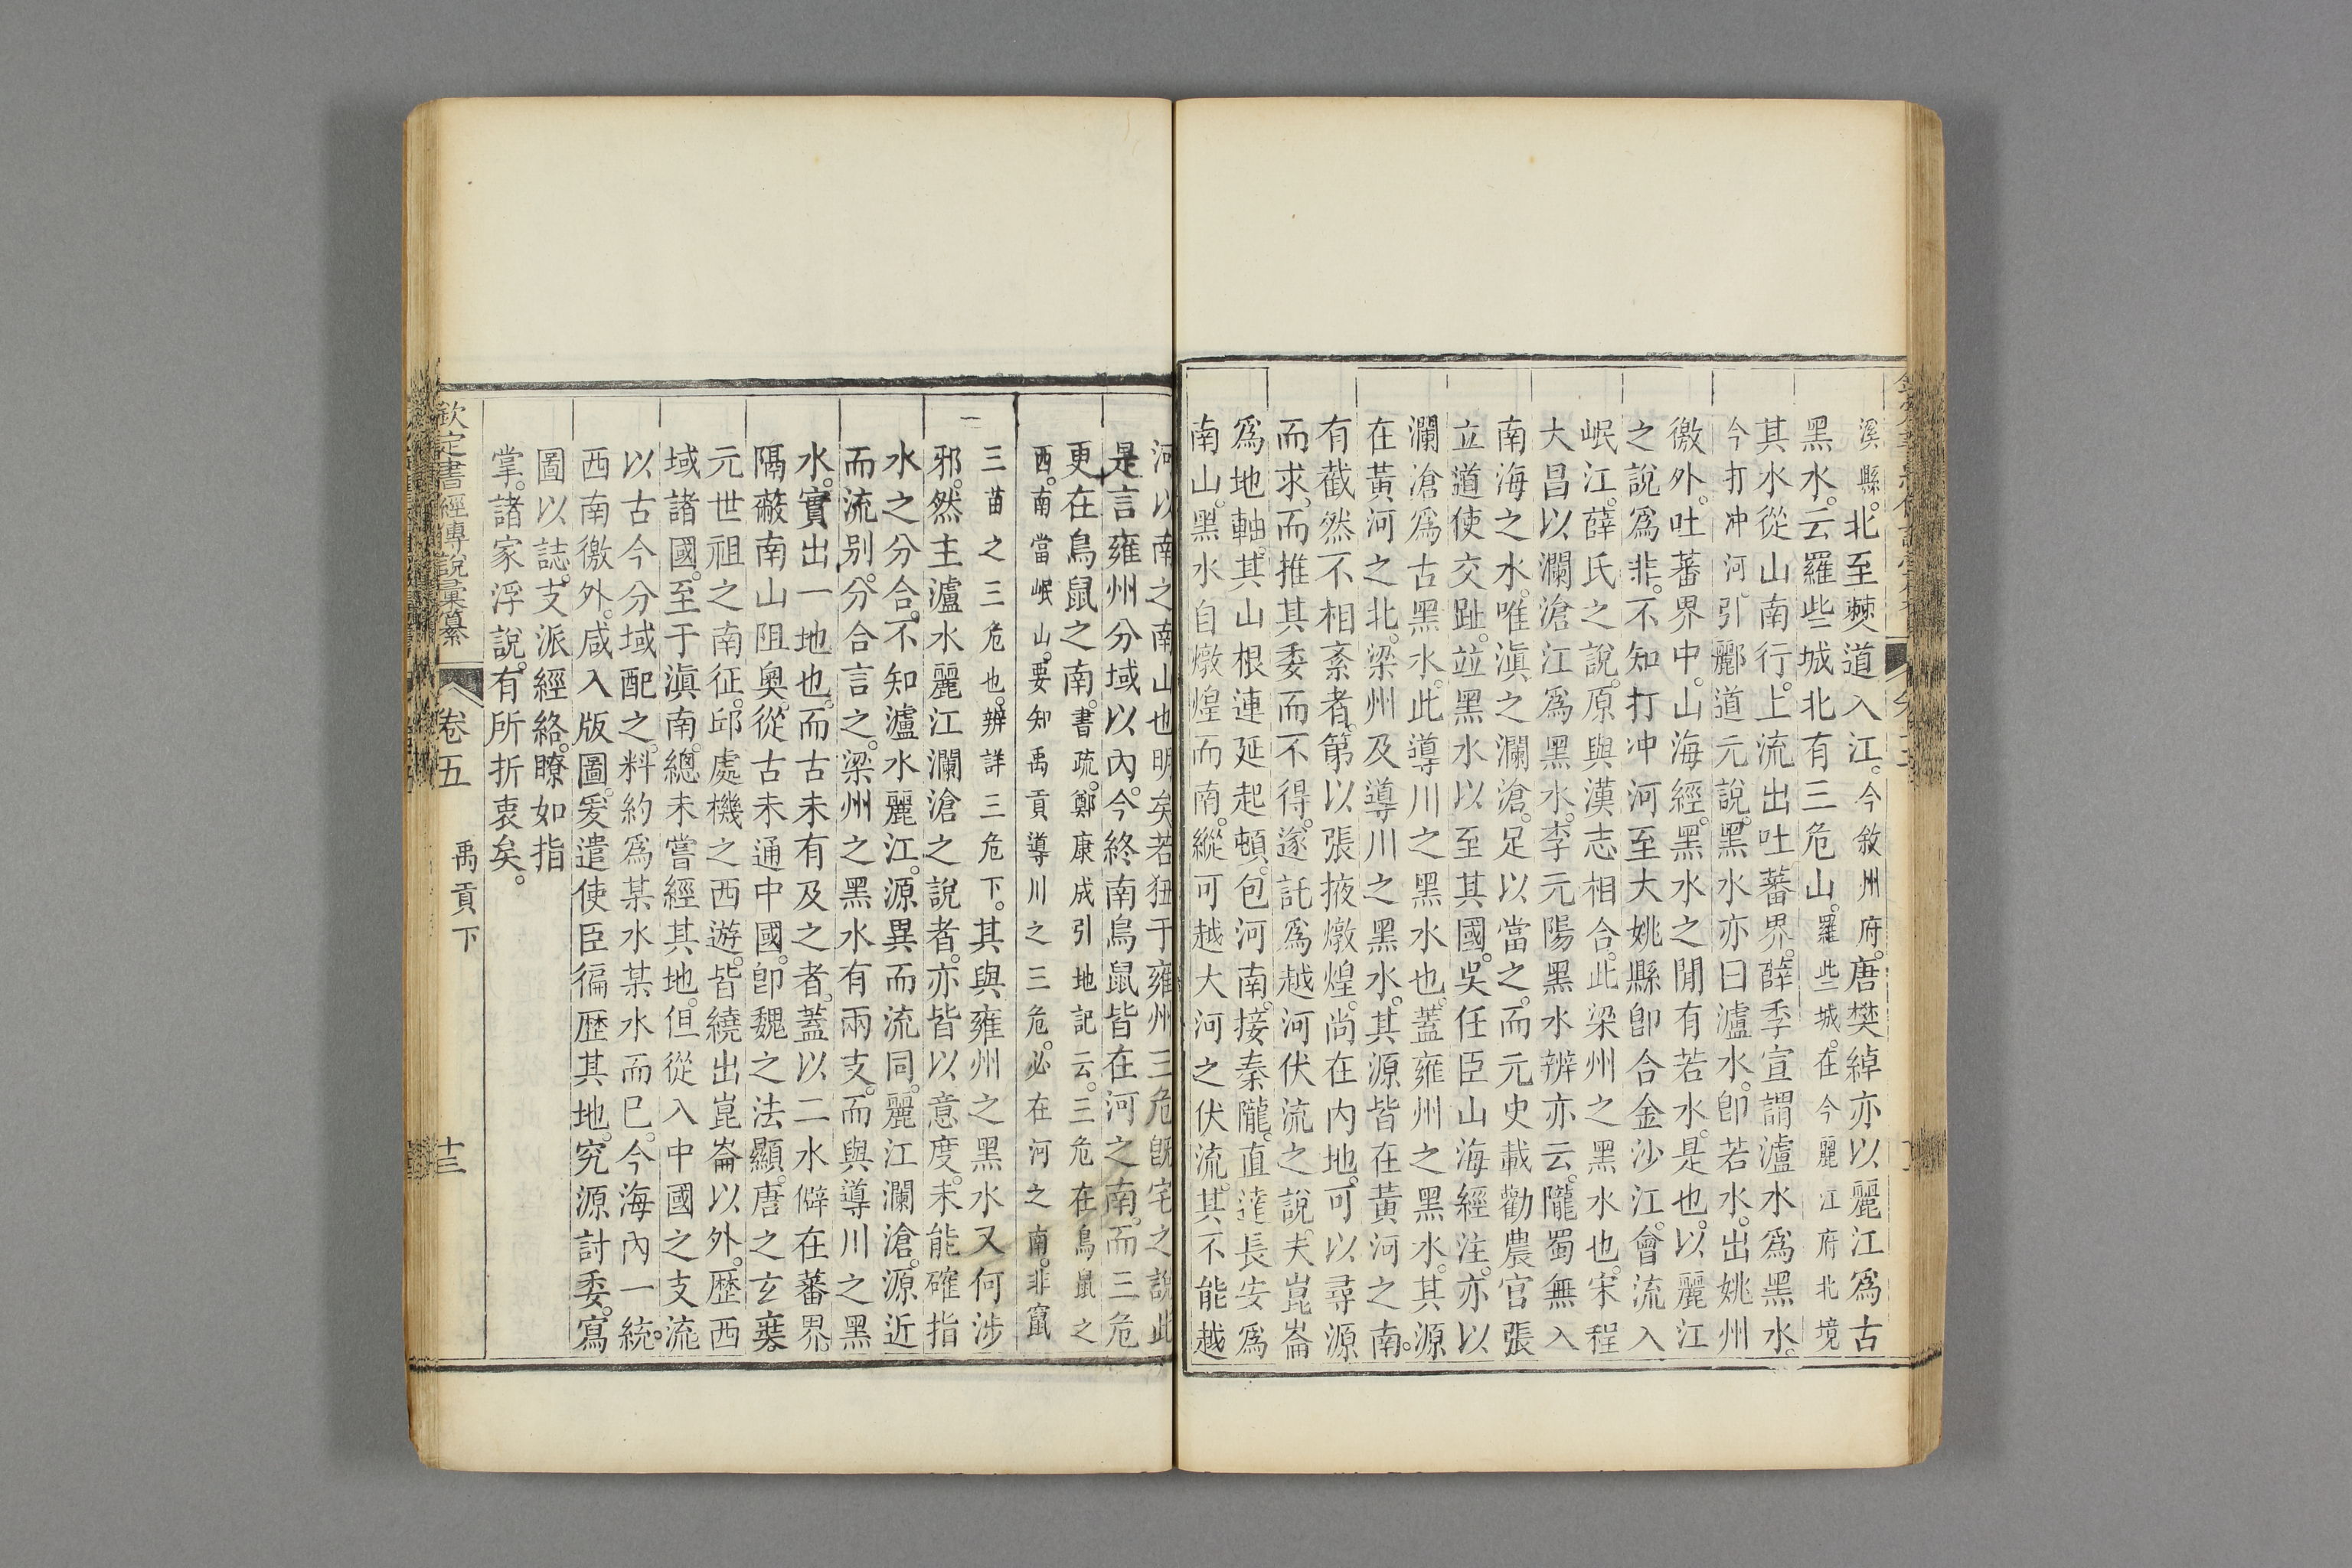 溪縣。北至僰道入江。今敘州府。唐樊綽亦以麗江爲古
黑水。云羅些城北有三危山。羅些城。在今麗江府北境
其水從山南行。上流出吐蕃界。薛季宣謂瀘水爲黑水。
今打冲河。引酈道元說。黑水亦曰瀘水。卽若水。出姚州
徼外。吐蕃界中。山海經。黑水之閒有若水。是也。以麗江
之說爲非。不知打冲河至大姚縣卽合金沙江。會流入
岷江。薛氏之說。原與漢志相合。此梁州之黑水也。宋程
大昌以瀾滄江爲黑水。李元陽黑水辨亦云。隴蜀無入
南海之水。唯滇之瀾滄。足以當之。而元史載勸農官張
立道使交趾。竝黑水以至其國。吳任臣山海經注。亦以
瀾滄爲古黑水。此導川之黑水也。蓋雍州之黑水。其源
在黃河之北。梁州及導川之黑水。其源皆在黃河之南。
有截然不相紊者。第以張掖燉煌。尚在內地。可以尋源
而求。而推其委而不得。遂託爲越河伏流之說。夫崑崙
爲地軸。其山根連延起頓。包河南。接秦隴。直達長安爲
南山。黑水自燉煌而南。縱可越大河之伏流。其不能越
河以南之南山也明矣若狃于雍州三危旣宅之說此
是言雍州分域以內。今終南鳥鼠皆在河之南。而三危
更在鳥鼠之南。書疏。鄭康成引地記云。三危在鳥鼠之
西。南當岷山。要知禹貢導川之三危。必在河之南。非竄
三苗之三危也。辨詳三危下。其與雍州之黑水又何涉
邪。然主瀘水麗江瀾滄之說者。亦皆以意度。未能確指
水之分合。不知瀘水麗江。源異而流同。麗江瀾滄。源近
而流別。分合言之。梁州之黑水有兩支。而與導川之黑
水。實出一地也。而古未有及之者。蓋以二水僻在蕃界。
隔蔽南山阻奧。從古未通中國。卽魏之法顯。唐之玄奘。
元世祖之南征。邱處機之西遊。皆繞出崑崙以外。歷西
域諸國。至于滇南。總未嘗經其地。但從入中國之支流
以古今分域配之。料約爲某水某水而已。今海內一統。
西南徼外。咸入版圖。爰遣使臣徧歷其地。究源討委。寫
圖以誌。支派經絡。瞭如指
掌。諸家浮說。有所折衷矣。
欽定書經傳說彙纂 卷五 禹貢下 十三